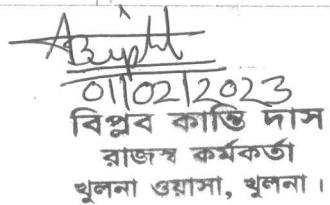 01/02/2023
বিপ্লব কান্তি দাস
রাজস্ব কর্মকর্তা
খুলনা ওয়াসা, খুলনা।